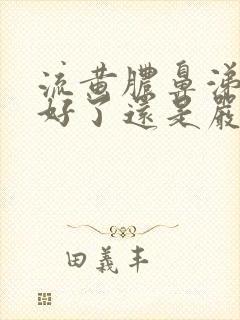 流黄膿鼻涕
好了還是嚴
田義丰